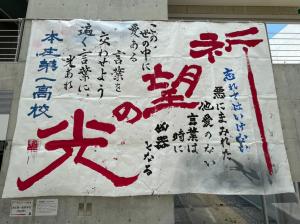 祈望の光
忘れてはいけない
悪にまみれた
他愛のない
言葉は時に
凶器となる
この世の中に
愛ある
言葉を
交わせよう
遠く言葉に
光あれ
本庄第一高校